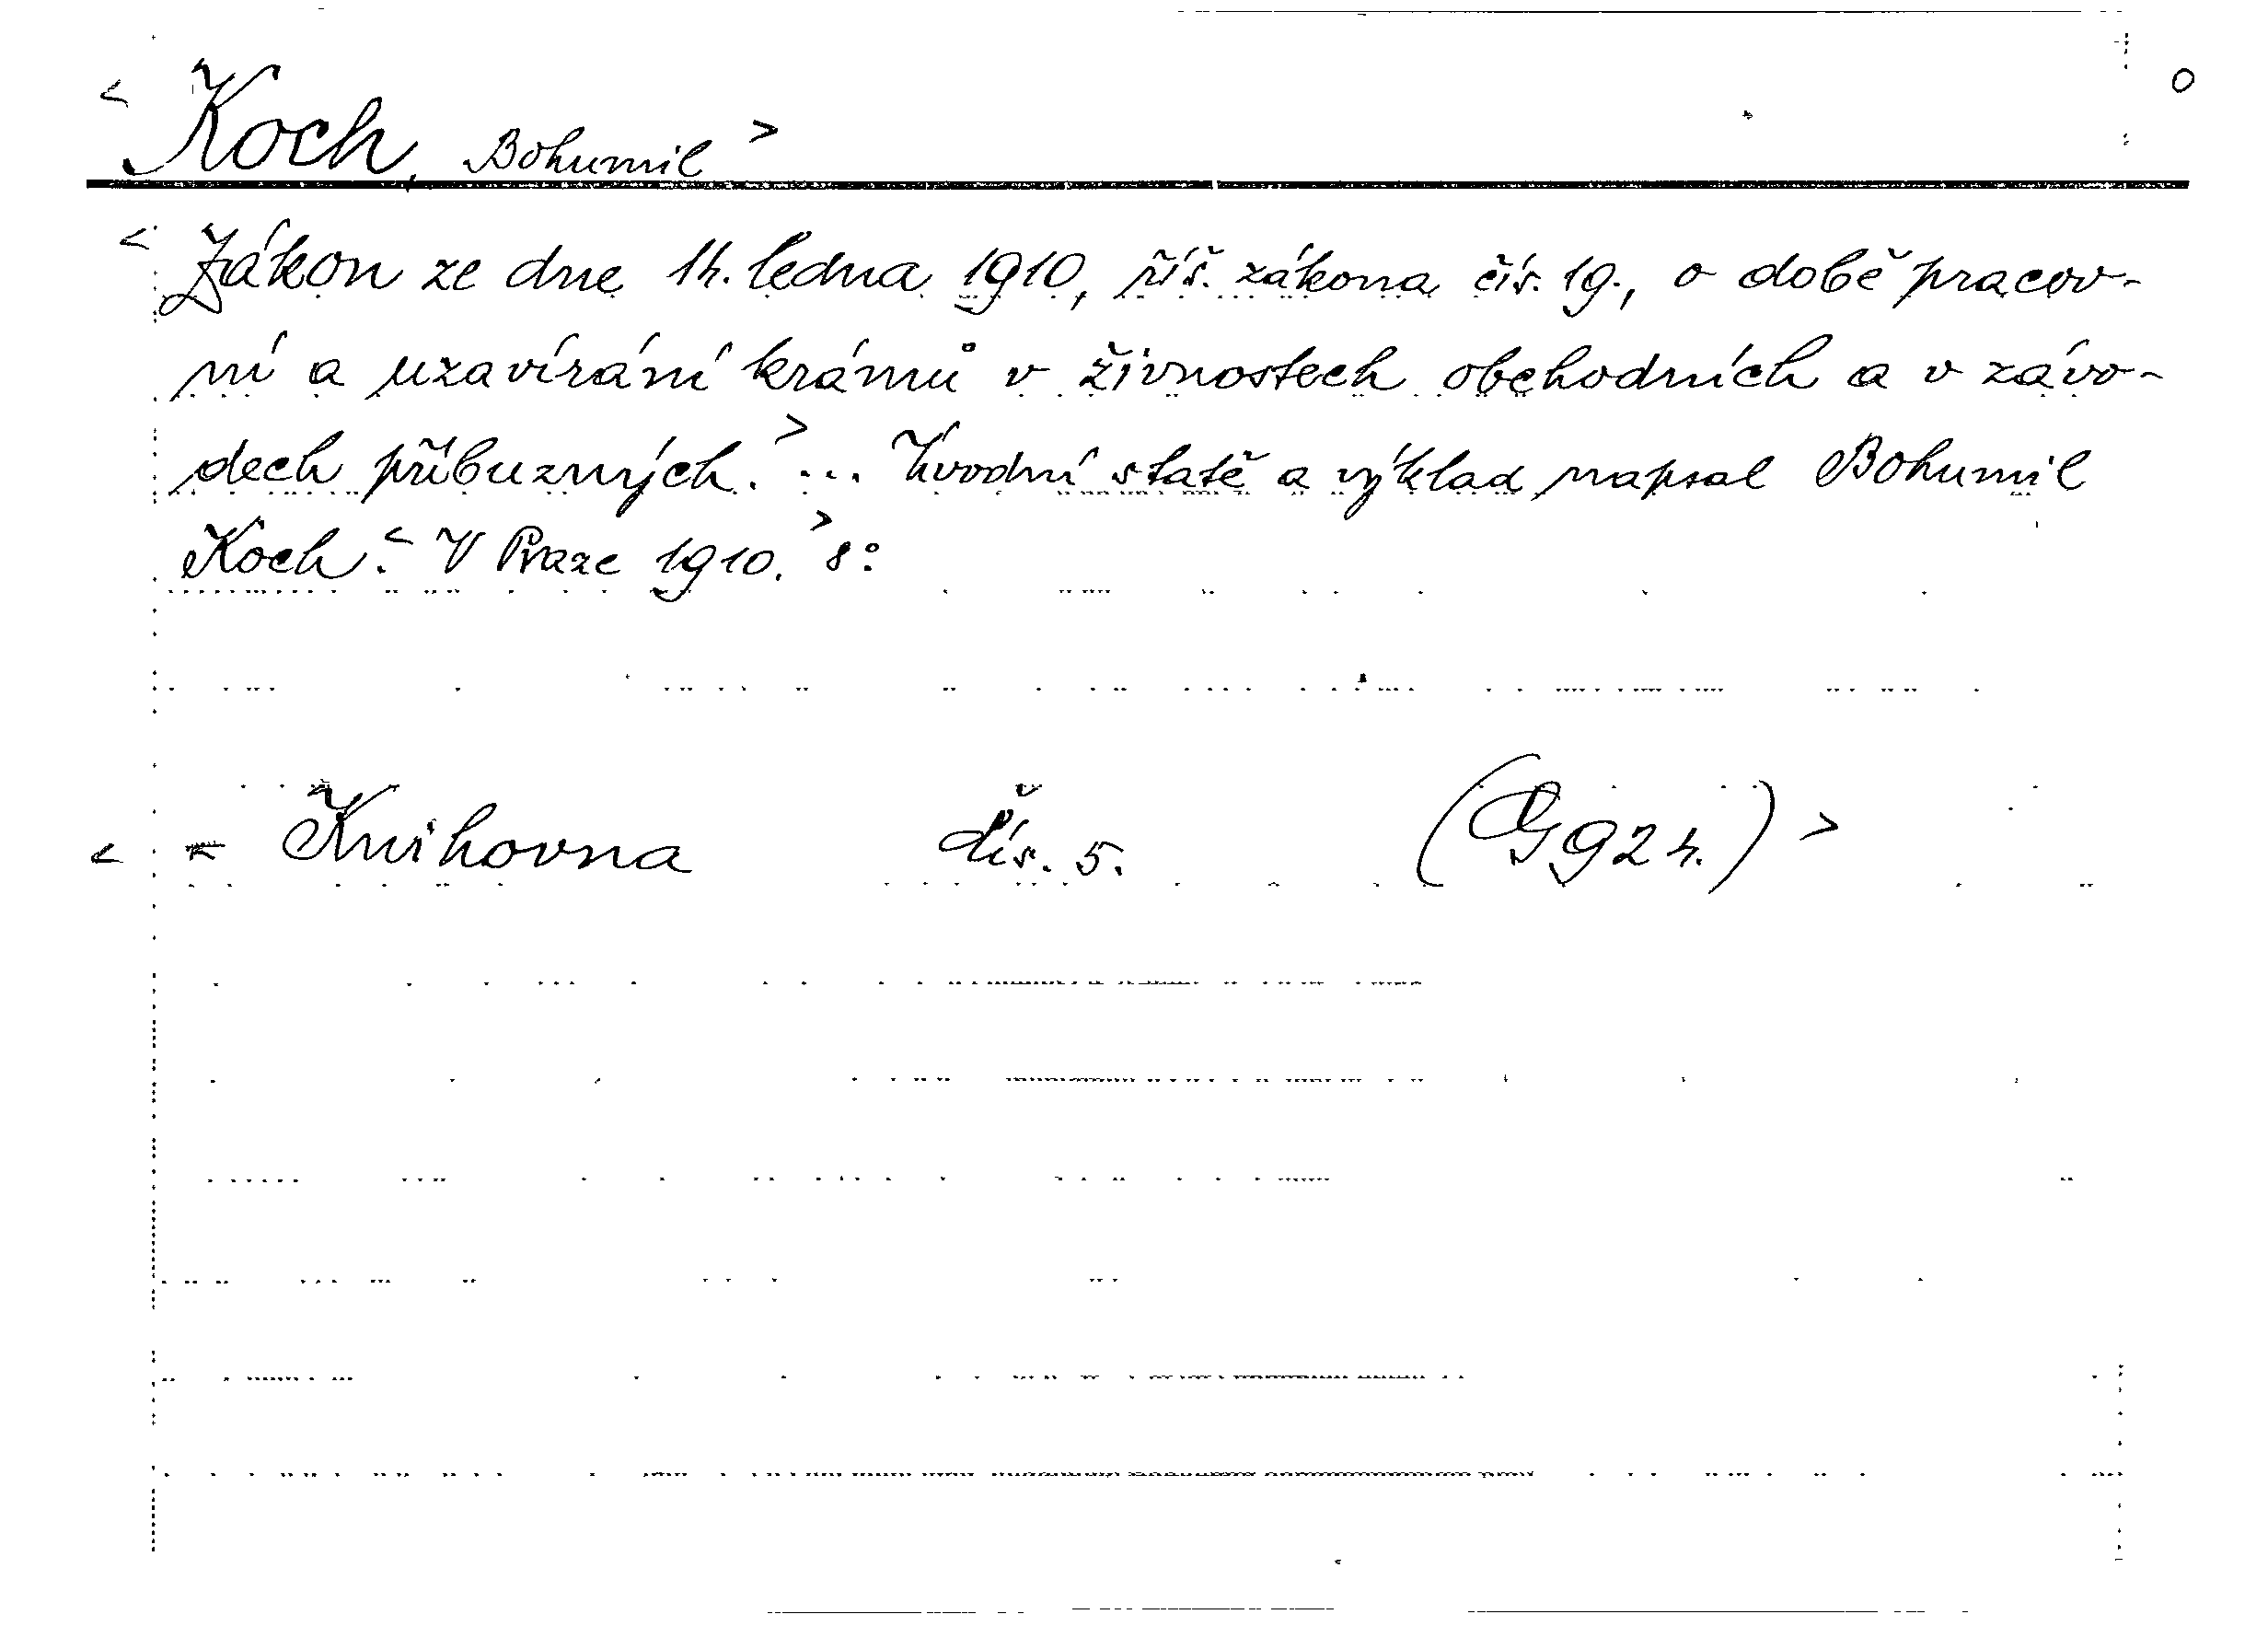 < Koch, Bohumil > o
< Zákon ze dne 14. ledna 1910, říš. zákona čís. 19., o době pracov-
ní a uzavírání krámů v živnostech obchodních a v závo-
dech příbuzných. > ... Úvodní statě a výklad napsal Bohumil
Koch. < V Praze 1910. > 8°.
< = Knihovna čís. 5. (Gg 24.) >